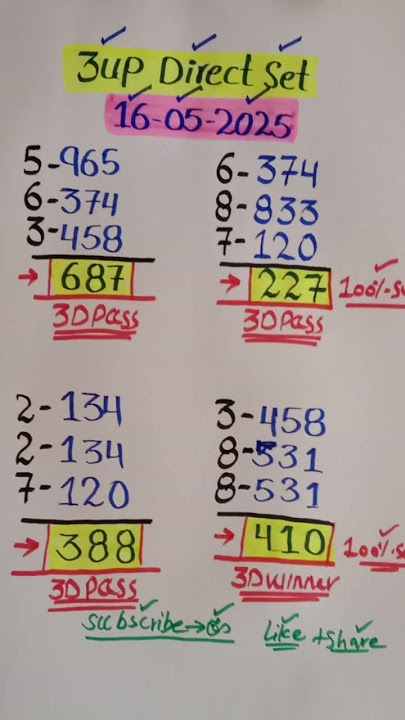 3up Direct Set
16-05-2025
5-965
6-374
3-458
→ 687
3D Pass
6-374
8-833
7-120
→ 227 100%-Su
3D Pass
2-134
2-134
7-120
→ 388
3D Pass
3-458
8-531
8-531
→ 410 100%-Su
3D winner
subscribe→
Like + Share